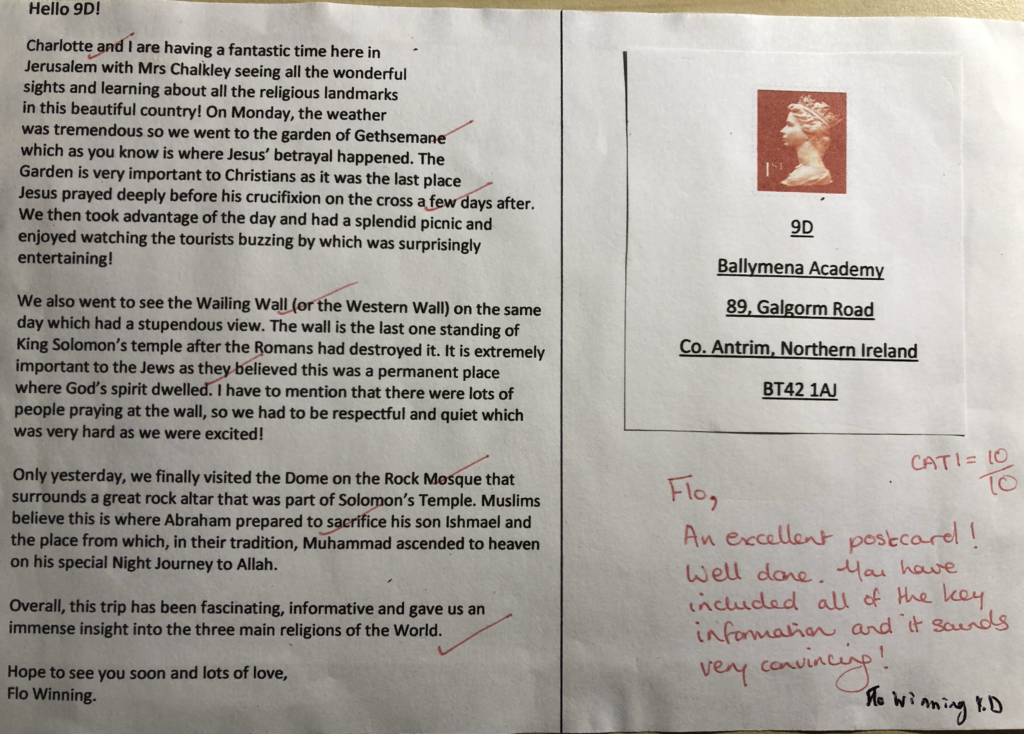 Hello 9D!
Charlotte and I are having a fantastic time here in
Jerusalem with Mrs Chalkley seeing all the wonderful
sights and learning about all the religious landmarks
in this beautiful country! On Monday, the weather
was tremendous so we went to the garden of Gethsemane
which as you know is where Jesus' betrayal happened. The
Garden is very important to Christians as it was the last place
Jesus prayed deeply before his crucifixion on the cross a few days after.
We then took advantage of the day and had a splendid picnic and
enjoyed watching the tourists buzzing by which was surprisingly
entertaining!
We also went to see the Wailing Wall (or the Western Wall) on the same
day which had a stupendous view. The wall is the last one standing of
King Solomon's temple after the Romans had destroyed it. It is extremely
important to the Jews as they believed this was a permanent place
where God's spirit dwelled. I have to mention that there were lots of
people praying at the wall, so we had to be respectful and quiet which
was very hard as we were excited!
Only yesterday, we finally visited the Dome on the Rock Mosque that
surrounds a great rock altar that was part of Solomon's Temple. Muslims
believe this is where Abraham prepared to sacrifice his son Ishmael and
the place from which, in their tradition, Muhammad ascended to heaven
on his special Night Journey to Allah.
Overall, this trip has been fascinating, informative and gave us an
immense insight into the three main religions of the World.
Hope to see you soon and lots of love,
Flo Winning.
1ST
9D
Ballymena Academy
89, Galgorm Road
Co. Antrim, Northern Ireland
BT42 1AJ
CAT1 = 10
10
Flo,
An excellent postcard!
Well done. You have
included all of the key
information and it sounds
very convincing!
Flo Winning 9.D